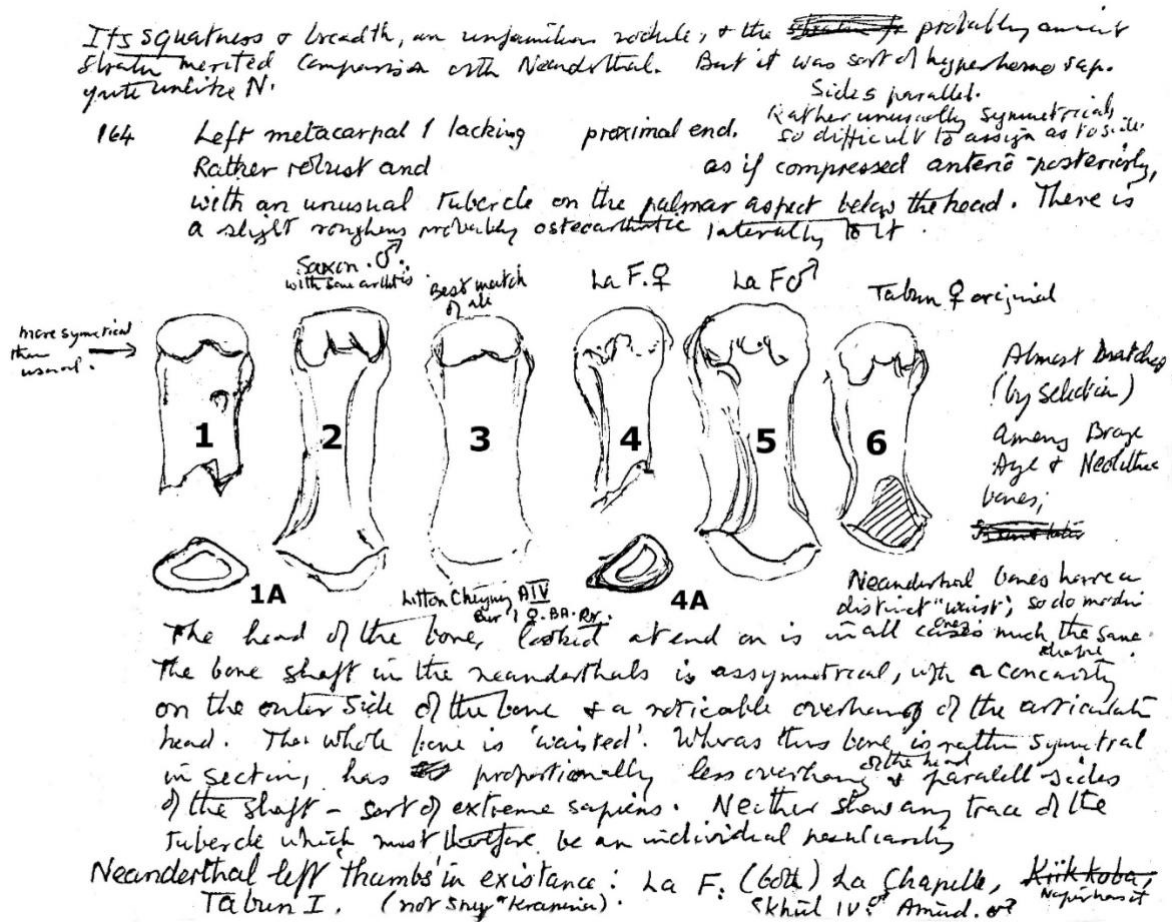 Its squatness & breadth, an unfamiliar nodule, & the probably ancient
strata merited comparison with Neanderthal. But it was sort of hyperhomo sap.
quite unlike N.
Sides parallel.
Rather unusually symmetrical,
so difficult to assign as to side.
164 Left metacarpal 1 lacking proximal end.
Rather robust and as if compressed anterio-posteriorly,
with an unusual tubercle on the palmar aspect below the head. There is
a slight roughens probably osteoarthritic laterally to it.
Saxon. ♂.
with some arthritis
Best match
of all
La F. ♀
La F ♂
Tabun ♀ original
more symetrical
than
usual. →
Almost matches
(by selection)
among Bronze
Age & Neolithic
bones;
1 2 3 4 5 6
1A
4A
Litton Cheyney AIV
Bur 1 ♀. BA.
Neanderthal bones have a
distinct "waist", so do modern
ones
The head of the bone, looked at end on is in all cases much the same
shape.
The bone shaft in the neanderthals is assymetrical, with a concavity
on the outer side of the bone & a noticable overhang of the articulation
head. The whole bone is 'waisted'. Wheras this bone is rather symetral
in section, has proportionally less overhang of the head & paralell sides
of the shaft – sort of extreme sapiens. Neither show any trace of the
tubercle which must therefore be an individual peculiarity
Neanderthal left 'thumbs' in existance: La F. (both) La Chapelle, Kiik Koba,
Tabun I. (not Krapina). Skhul IV ♂ Amud. ♂